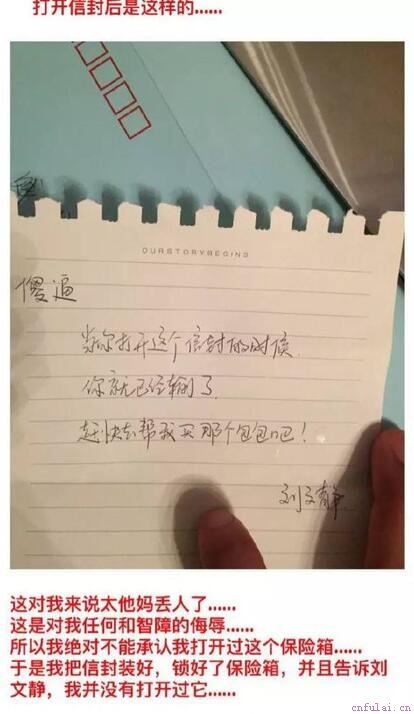 打开信封后是这样的......
OURSTORYBEGINS
傻逼
当你打开这个信封的时候
你就已经输了
赶快去帮我买那个包包吧!
刘文静
这对我来说太他妈丢人了......
这是对我任何和智障的侮辱......
所以我绝对不能承认我打开过这个保险箱......
于是我把信封装好，锁好了保险箱，并且告诉刘
文静，我并没有打开过它......
cnfulai.cn